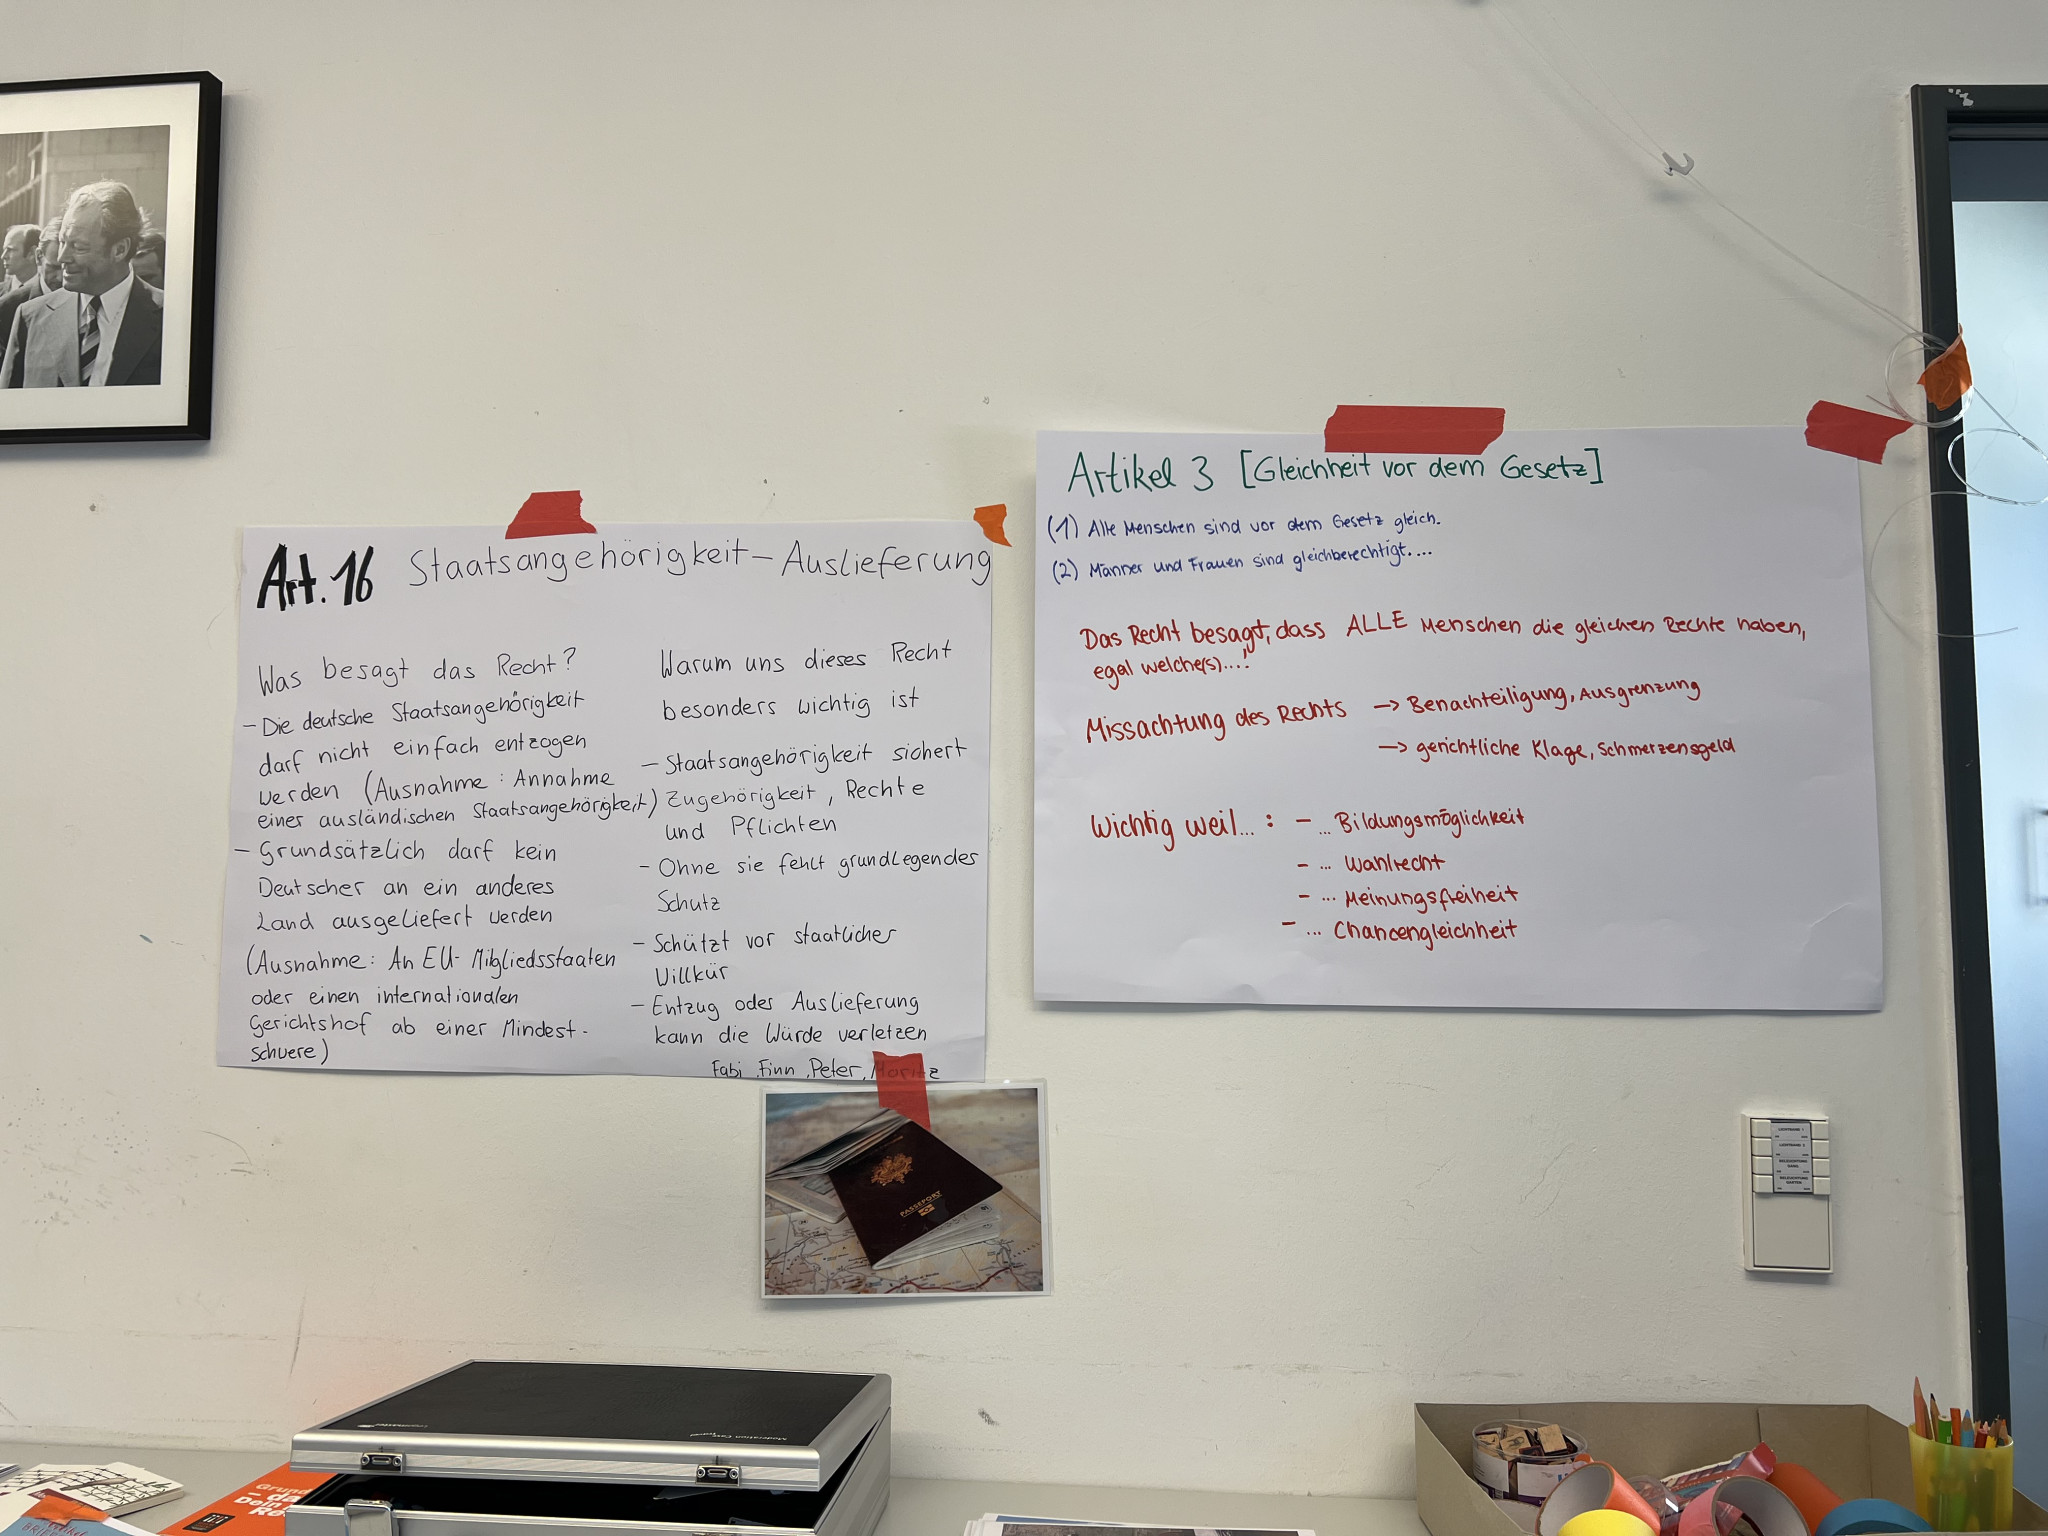 Art. 16 Staatsangehörigkeit – Auslieferung
Was besagt das Recht?
- Die deutsche Staatsangehörigkeit
darf nicht einfach entzogen
werden (Ausnahme: Annahme
einer ausländischen Staatsangehörigkeit)
- Grundsätzlich darf kein
Deutscher an ein anderes
Land ausgeliefert werden
(Ausnahme: An EU-Mitgliedsstaaten
oder einen internationalen
Gerichtshof ab einer Mindest-
schwere)
Warum uns dieses Recht
besonders wichtig ist
- Staatsangehörigkeit sichert
Zugehörigkeit, Rechte
und Pflichten
- Ohne sie fehlt grundlegendes
Schutz
- Schützt vor staatlicher
Willkür
- Entzug oder Auslieferung
kann die Würde verletzen
Fabi, Finn, Peter, Moritz
Artikel 3 [Gleichheit vor dem Gesetz]
(1) Alle Menschen sind vor dem Gesetz gleich.
(2) Männer und Frauen sind gleichberechtigt....
Das Recht besagt, dass ALLE Menschen die gleichen Rechte haben,
egal welche(s)....!
Missachtung des Rechts → Benachteiligung, Ausgrenzung
→ gerichtliche Klage, Schmerzensgeld
Wichtig weil... : - ... Bildungsmöglichkeit
- ... Wahlrecht
- ... Meinungsfreiheit
- ... Chancengleichheit
PASSEPORT
LICHTBAND 1
LICHTBAND 2
BELEUCHTUNG
GANG
BELEUCHTUNG
GARTEN
Moderation Case
Travel